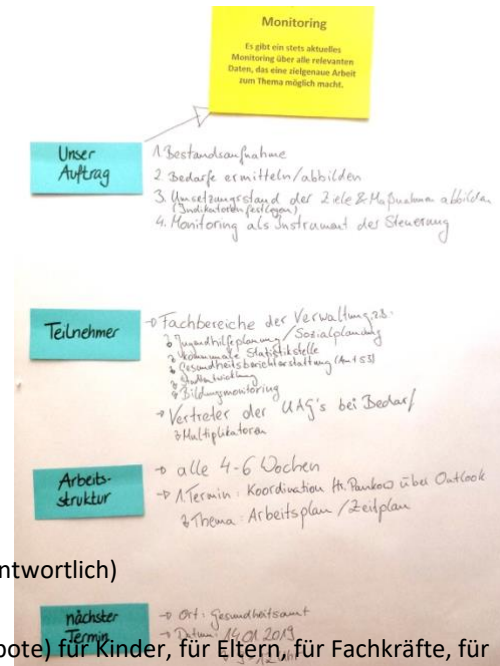 Monitoring
Es gibt ein stets aktuelles
Monitoring über alle relevanten
Daten, das eine zielgenaue Arbeit
zum Thema möglich macht.
Unser
Auftrag
1. Bestandsaufnahme
2. Bedarfe ermitteln/abbilden
3. Umsetzungsstand der Ziele & Maßnahmen abbilden
(Indikatoren festlegen)
4. Monitoring als Instrument der Steuerung
Teilnehmer
→ Fachbereiche der Verwaltung z.B.
Jugendhilfeplanung / Sozialplanung
kommunale Statistikstelle
Gesundheitsberichterstattung (Amt 53)
Stadtentwicklung
Bildungsmonitoring
→ Vertreter der UAG's bei Bedarf
Multiplikatoren
Arbeits-
struktur
→ alle 4-6 Wochen
→ 1. Termin: Koordination Hr. Pankow über Outlook
Thema: Arbeitsplan / Zeitplan
ntwortlich)
nächster
Termin
→ Ort: Gesundheitsamt
→ Datum: 14.01.2019
bote) für Kinder, für Eltern, für Fachkräfte, für